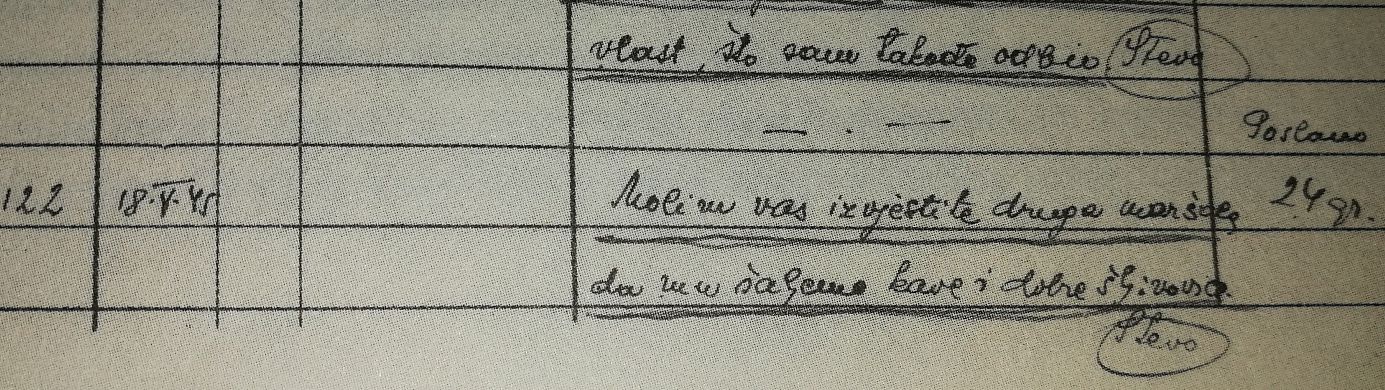 vlast, što sam takođe odbio Stevo
— . —
Poslano
122 18.V.45 Molim vas izvjestite druga maršala 24 gr.
da mu šaljemo kave i dobre šljivovice.
Stevo